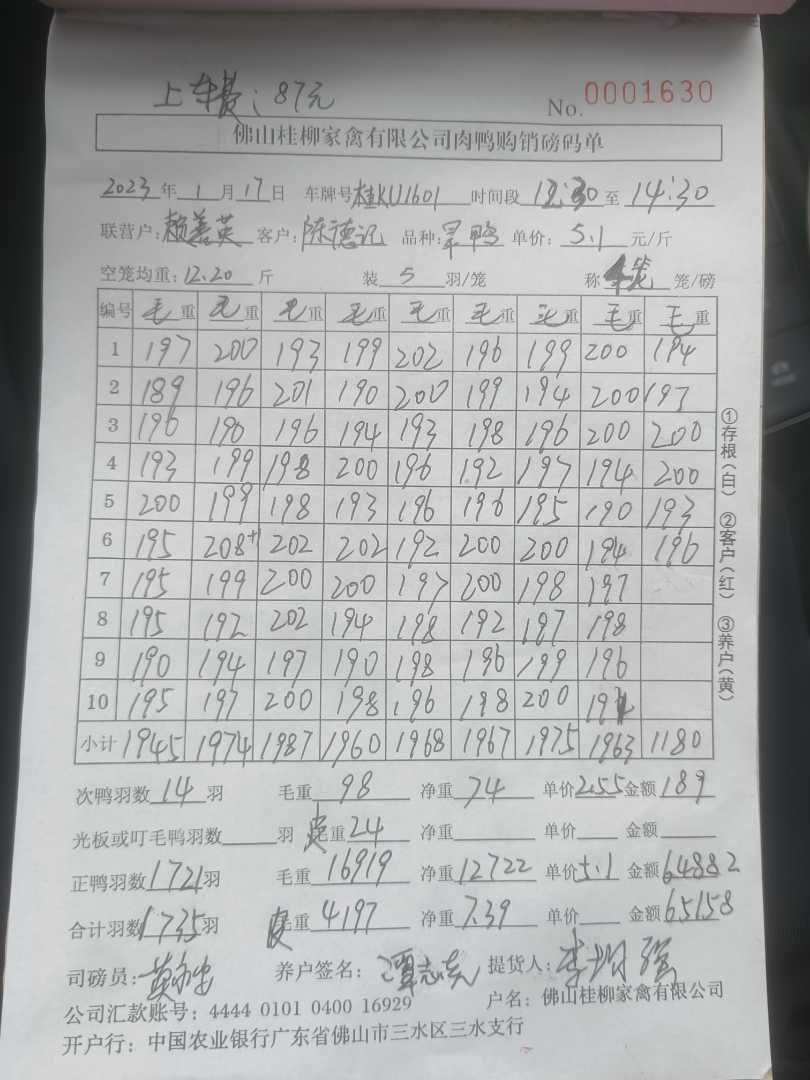 上车费：87元
No. 0001630
佛山桂柳家禽有限公司肉鸭购销磅码单
2023年1月17日 车牌号桂KU1601 时间段12:30至14:30
联营户：赖善英 客户：陈德记 品种：旱鸭 单价：5.1元/斤
空笼均重：12.20斤 装5羽/笼 称笼笼/磅
编号 毛重 毛重 毛重 毛重 毛重 毛重 毛重 毛重 毛重
1 197 200 193 199 202 196 199 200 194
2 189 196 201 190 200 199 194 200 197
3 196 190 196 194 193 198 196 200 200
4 193 199 198 200 196 192 197 194 200
5 200 199 198 193 196 196 195 190 193
6 195 208+1 202 202 192 200 200 194 196
7 195 199 200 200 197 200 198 197
8 195 192 202 194 198 192 197 198
9 190 194 197 190 198 196 199 196
10 195 197 200 198 196 198 200
小计 1945 1974 1987 1960 1968 1967 1975 1963 1180
次鸭羽数14羽 毛重98 净重74 单价2.55金额189
光板或叮毛鸭羽数 羽 皮重24 净重 单价 金额
正鸭羽数1721羽 毛重16919 净重12722 单价5.1金额64882
合计羽数1735羽 皮重4197 净重7.39 单价 金额65158
司磅员： 养户签名：潭志 提货人：李均强
公司汇款账号：4444 0101 0400 16929 户名：佛山桂柳家禽有限公司
开户行：中国农业银行广东省佛山市三水区三水支行
①存根(白) ②客户(红) ③养户(黄)